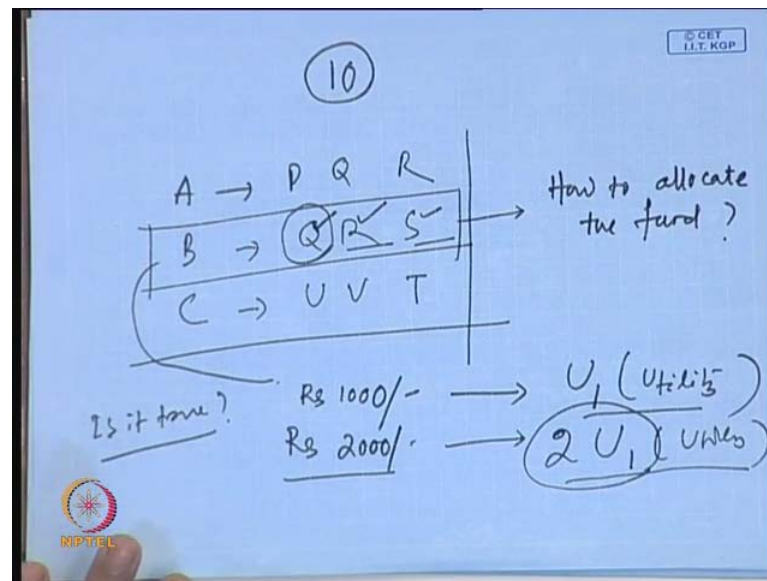 © CET
I.I.T. KGP
10
A → P Q R
B → Q R S
C → U V T
How to allocate
the fund ?
Is it true ?
Rs 1000/- → U₁ (Utility)
Rs 2000/- → 2 U₁ (
NPTEL